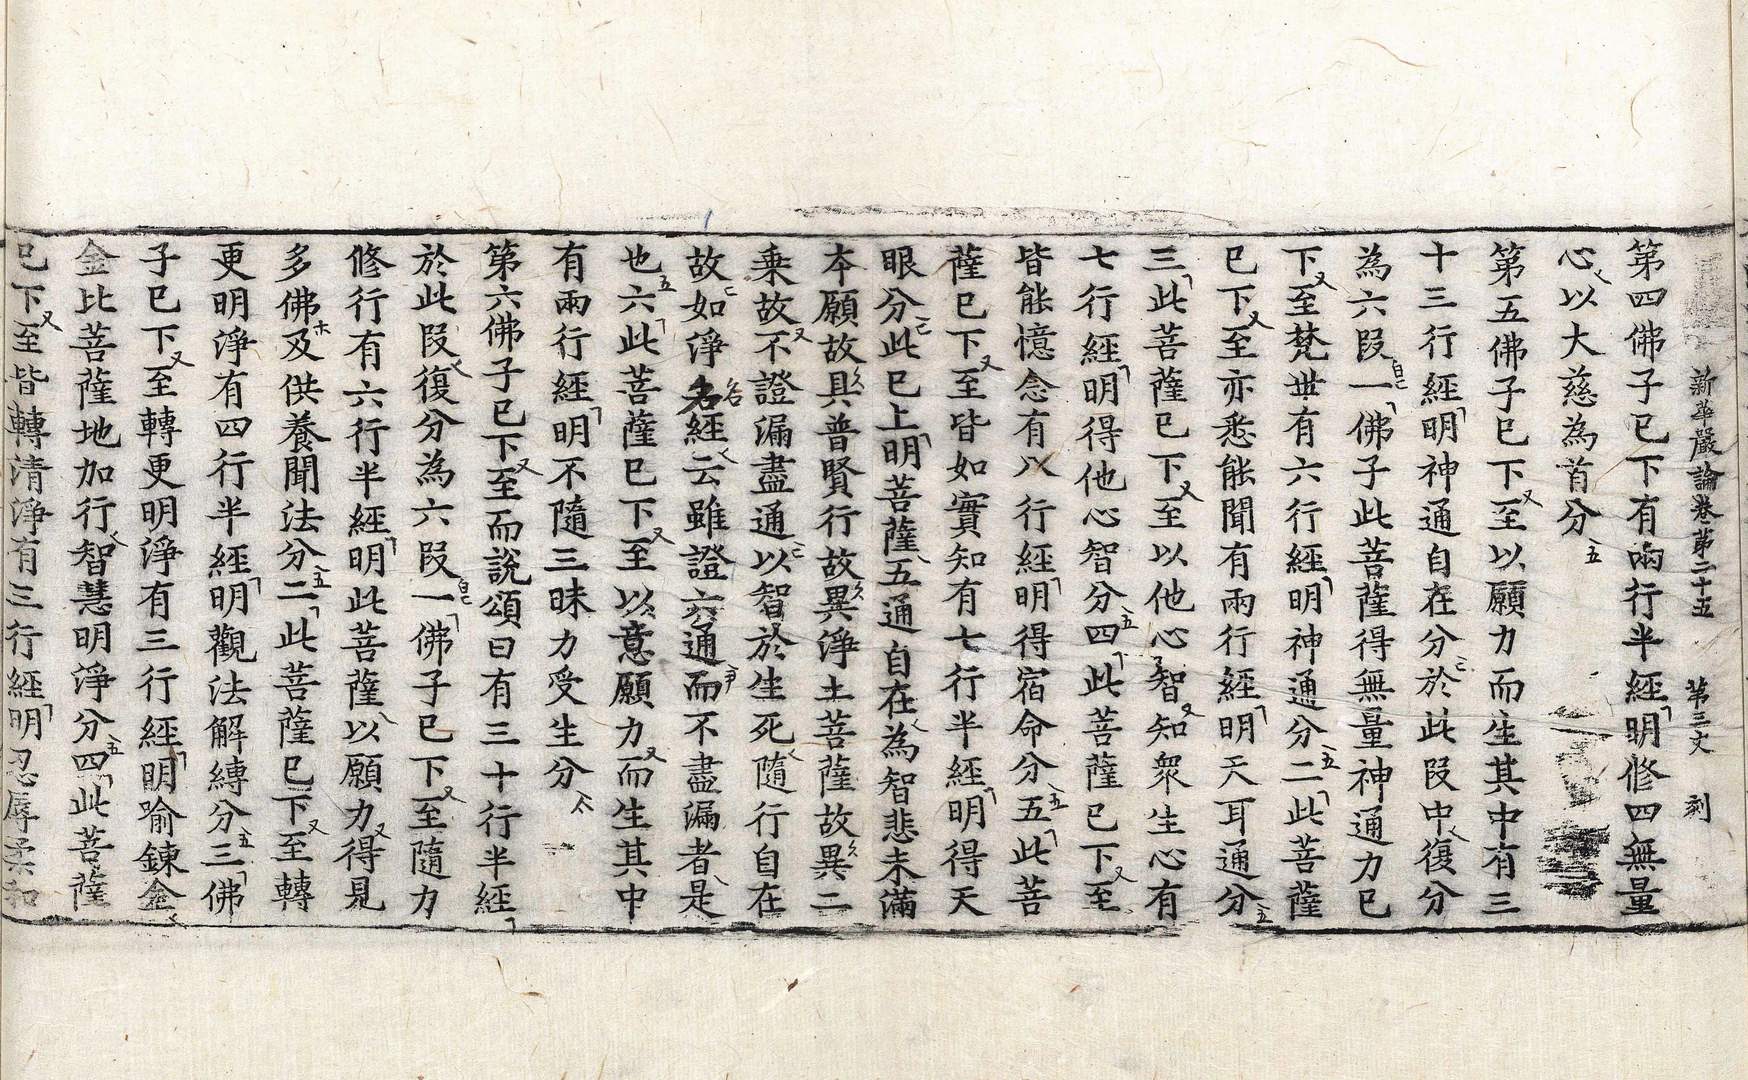 新華嚴論卷第二十五　第三丈　刻
第四佛子已下有兩行半經明修四無量
心以大慈為首分
第五佛子已下至以願力而生其中有三
十三行經明神通自在分於此段中復分
為六段一佛子此菩薩得無量神通力已
下至梵世有六行經明神通分二此菩薩
已下至亦悉能聞有兩行經明天耳通分
三此菩薩已下至以他心智知衆生心有
七行經明得他心智分四此菩薩已下至
皆能憶念有八行經明得宿命分五此菩
薩已下至皆如實知有七行半經明得天
眼分此已上明菩薩五通自在為智悲未滿
本願故具普賢行故異淨土菩薩故異二
乘故不證漏盡通以智於生死隨行自在
故如淨名經云雖證六通而不盡漏者是
也六此菩薩已下至以意願力而生其中
有兩行經明不隨三昧力受生分
第六佛子已下至而說頌曰有三十行半經
於此段復分為六段一佛子已下至隨力
修行有六行半經明此菩薩以願力得見
多佛及供養聞法分二此菩薩已下至轉
更明淨有四行半經明觀法解縛分三佛
子已下至轉更明淨有三行經明喻鍊金
金比菩薩地加行智慧明淨分四此菩薩
已下至皆轉清淨有三行經明忍辱柔和